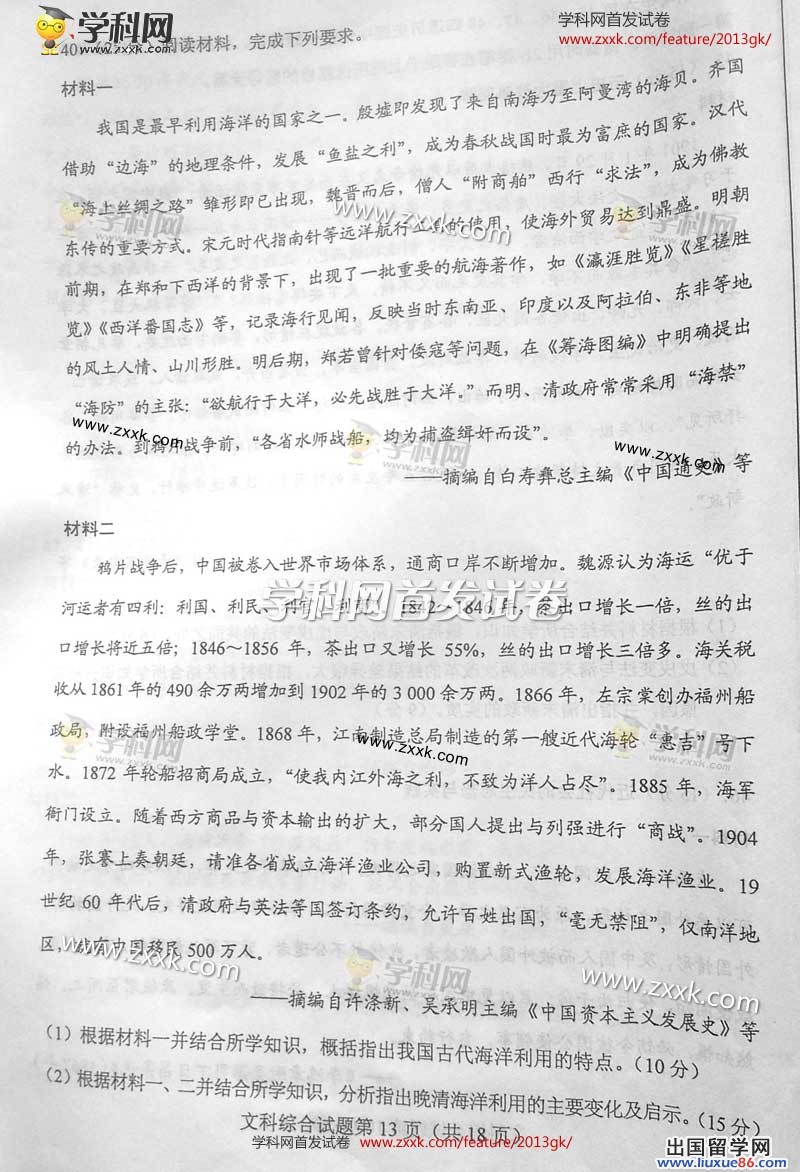 学科网首发试卷
www.zxxk.com/feature/2013gk/
学科网
zxxk.com
40. 阅读材料，完成下列要求。
材料一
我国是最早利用海洋的国家之一。殷墟即发现了来自南海乃至阿曼湾的海贝。齐国
借助“边海”的地理条件，发展“鱼盐之利”，成为春秋战国时最为富庶的国家。汉代
“海上丝绸之路”雏形即已出现，魏晋而后，僧人“附商舶”西行“求法”，成为佛教
www.zxxk.com
东传的重要方式。宋元时代指南针等远洋航行工具的使用，使海外贸易达到鼎盛。明朝
前期，在郑和下西洋的背景下，出现了一批重要的航海著作，如《瀛涯胜览》《星槎胜
览》《西洋番国志》等，记录海行见闻，反映当时东南亚、印度以及阿拉伯、东非等地
的风土人情、山川形胜。明后期，郑若曾针对倭寇等问题，在《筹海图编》中明确提出
“海防”的主张：“欲航行于大洋，必先战胜于大洋。”而明、清政府常常采用“海禁”
的办法。到鸦片战争前，“各省水师战船，均为捕盗缉奸而设”。
www.zxxk.com
www.zxxk.com
——摘编自白寿彝总主编《中国通史》等
材料二
鸦片战争后，中国被卷入世界市场体系，通商口岸不断增加。魏源认为海运“优于
学科网首发试卷
河运者有四利：利国、利民、利官、利商”。1842～1846年，茶出口增长一倍，丝的出
口增长将近五倍；1846～1856年，茶出口又增长55%，丝的出口增长三倍多。海关税
收从1861年的490余万两增加到1902年的3 000余万两。1866年，左宗棠创办福州船
政局，附设福州船政学堂。1868年，江南制造总局制造的第一艘近代海轮“惠吉”号下
www.zxxk.com
水。1872年轮船招商局成立，“使我内江外海之利，不致为洋人占尽”。1885年，海军
衙门设立。随着西方商品与资本输出的扩大，部分国人提出与列强进行“商战”。1904
年，张謇上奏朝廷，请准各省成立海洋渔业公司，购置新式渔轮，发展海洋渔业。19
世纪60年代后，清政府与英法等国签订条约，允许百姓出国，“毫无禁阻”，仅南洋地
区，就有中国移民500万人。
www.zxxk.com
学科网
zxxk.com
——摘编自许涤新、吴承明主编《中国资本主义发展史》等
（1）根据材料一并结合所学知识，概括指出我国古代海洋利用的特点。（10分）
（2）根据材料一、二并结合所学知识，分析指出晚清海洋利用的主要变化及启示。（15分）
文科综合试题第13页（共18页）
学科网首发试卷 www.zxxk.com/feature/2013gk/
出国留学网
www.liuxue86.com